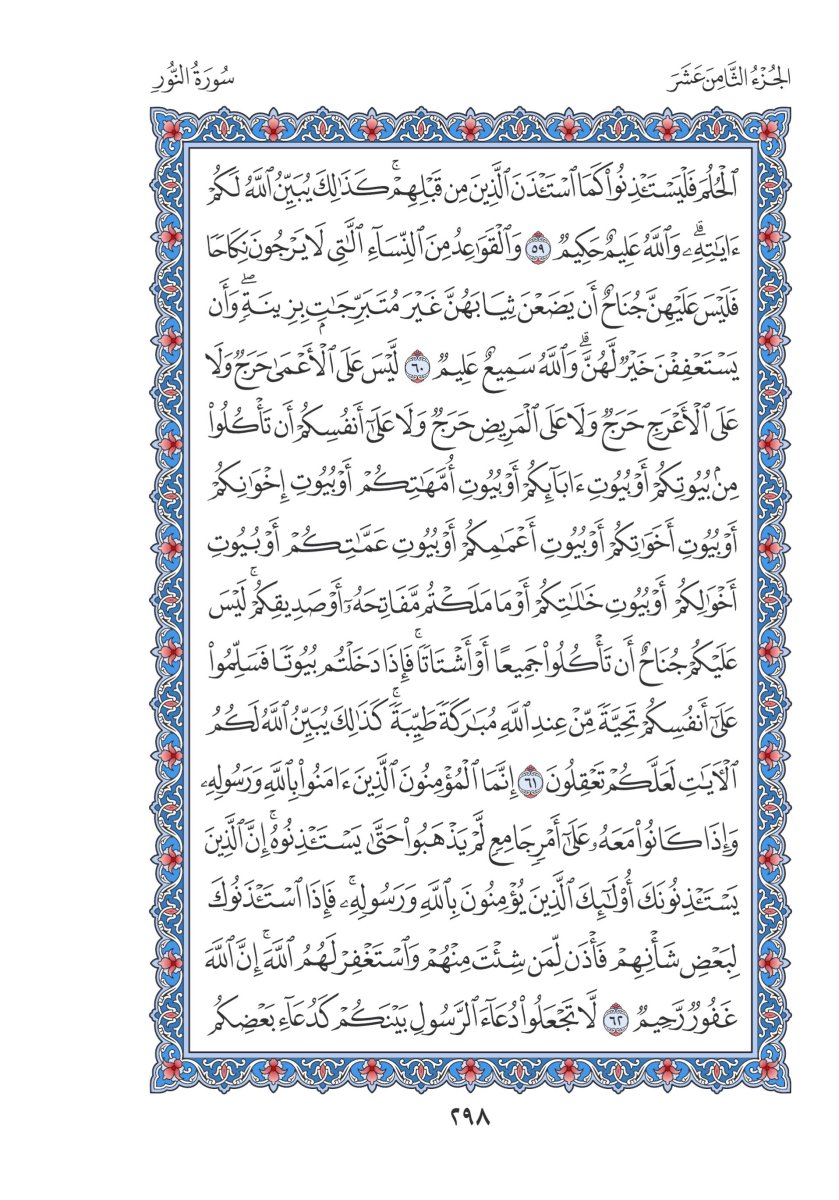 الجُزْءُ الثَّامِنَ عَشَرَ
سُورَةُ النُّورِ
ٱلْحُلُمَ فَلْيَسْتَـْٔذِنُوا۟ كَمَا ٱسْتَـْٔذَنَ ٱلَّذِينَ مِن قَبْلِهِمْۚ كَذَٰلِكَ يُبَيِّنُ ٱللَّهُ لَكُمْ
ءَايَٰتِهِۦۗ وَٱللَّهُ عَلِيمٌ حَكِيمٌ ٥٩ وَٱلْقَوَٰعِدُ مِنَ ٱلنِّسَآءِ ٱلَّٰتِى لَا يَرْجُونَ نِكَاحًا
فَلَيْسَ عَلَيْهِنَّ جُنَاحٌ أَن يَضَعْنَ ثِيَابَهُنَّ غَيْرَ مُتَبَرِّجَٰتٍۭ بِزِينَةٍۖ وَأَن
يَسْتَعْفِفْنَ خَيْرٌ لَّهُنَّۗ وَٱللَّهُ سَمِيعٌ عَلِيمٌ ٦٠ لَّيْسَ عَلَى ٱلْأَعْمَىٰ حَرَجٌ وَلَا
عَلَى ٱلْأَعْرَجِ حَرَجٌ وَلَا عَلَى ٱلْمَرِيضِ حَرَجٌ وَلَا عَلَىٰٓ أَنفُسِكُمْ أَن تَأْكُلُوا۟
مِنۢ بُيُوتِكُمْ أَوْ بُيُوتِ ءَابَآئِكُمْ أَوْ بُيُوتِ أُمَّهَٰتِكُمْ أَوْ بُيُوتِ إِخْوَٰنِكُمْ
أَوْ بُيُوتِ أَخَوَٰتِكُمْ أَوْ بُيُوتِ أَعْمَٰمِكُمْ أَوْ بُيُوتِ عَمَّٰتِكُمْ أَوْ بُيُوتِ
أَخْوَٰلِكُمْ أَوْ بُيُوتِ خَٰلَٰتِكُمْ أَوْ مَا مَلَكْتُم مَّفَاتِحَهُۥٓ أَوْ صَدِيقِكُمْۚ لَيْسَ
عَلَيْكُمْ جُنَاحٌ أَن تَأْكُلُوا۟ جَمِيعًا أَوْ أَشْتَاتًاۚ فَإِذَا دَخَلْتُم بُيُوتًا فَسَلِّمُوا۟
عَلَىٰٓ أَنفُسِكُمْ تَحِيَّةً مِّنْ عِندِ ٱللَّهِ مُبَٰرَكَةً طَيِّبَةًۚ كَذَٰلِكَ يُبَيِّنُ ٱللَّهُ لَكُمُ
ٱلْءَايَٰتِ لَعَلَّكُمْ تَعْقِلُونَ ٦١ إِنَّمَا ٱلْمُؤْمِنُونَ ٱلَّذِينَ ءَامَنُوا۟ بِٱللَّهِ وَرَسُولِهِۦ
وَإِذَا كَانُوا۟ مَعَهُۥ عَلَىٰٓ أَمْرٍ جَامِعٍ لَّمْ يَذْهَبُوا۟ حَتَّىٰ يَسْتَـْٔذِنُوهُۚ إِنَّ ٱلَّذِينَ
يَسْتَـْٔذِنُونَكَ أُو۟لَٰٓئِكَ ٱلَّذِينَ يُؤْمِنُونَ بِٱللَّهِ وَرَسُولِهِۦۚ فَإِذَا ٱسْتَـْٔذَنُوكَ
لِبَعْضِ شَأْنِهِمْ فَأْذَن لِّمَن شِئْتَ مِنْهُمْ وَٱسْتَغْفِرْ لَهُمُ ٱللَّهَۚ إِنَّ ٱللَّهَ
غَفُورٌ رَّحِيمٌ ٦٢ لَّا تَجْعَلُوا۟ دُعَآءَ ٱلرَّسُولِ بَيْنَكُمْ كَدُعَآءِ بَعْضِكُم
٢٩٨